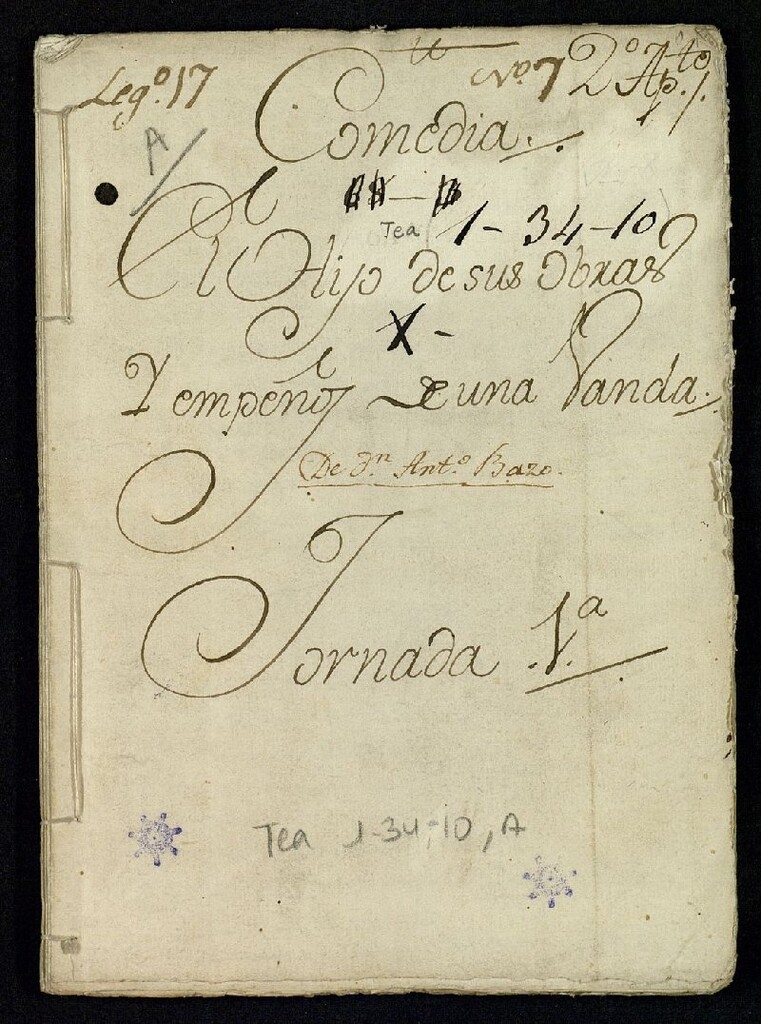 Leg.º 17
Nº 7 2º Ap.to 1
A
Comedia.
Tea 1-34-10
El Hijo de sus obras
X-
Y empeños de una Vanda.
De Dn. Ant.º Bazo.
Jornada 1.ª
Tea 1-34-10, A